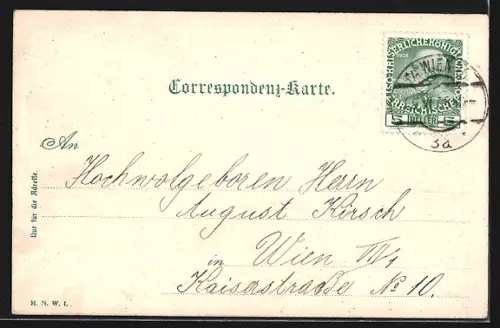 Correspondenz-Karte.
KAISERLICHE KÖNIGLICHE
ÖSTERREICHISCHE POST
5 HELLER 5
WIEN
3a
An
Hochwolgeboren Herrn
August Kirsch
in Wien
Kaiserstraße No 10.
Nur für die Adresse.
H. N. W. I.